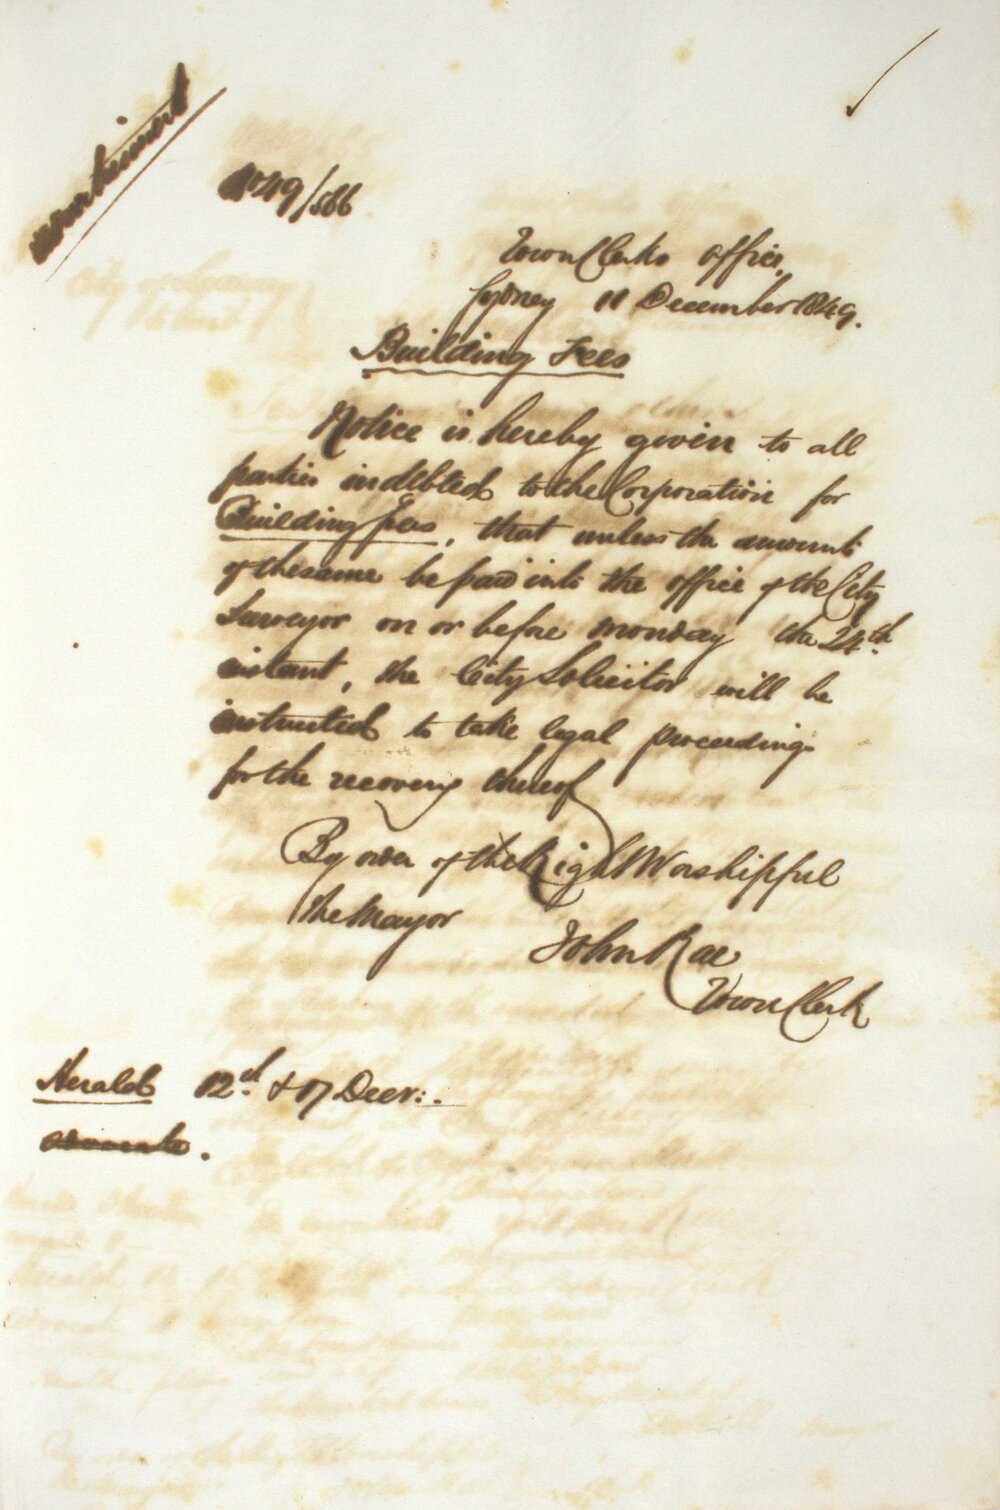 Advertisement
No 49/566
Town Clerks Office,
Sydney 11 December 1849.
Building Fees
Notice is hereby given to all
parties indebted to the Corporation for
Building Fees, that unless the amount
of the same be paid into the office of the City
Surveyor on or before Monday the 24th
instant, the City Solicitor will be
instructed to take legal proceedings
for the recovery thereof
By order of the Right Worshipful
the Mayor
John Rae
Town Clerk
Herald 12th & 17 Decr:.